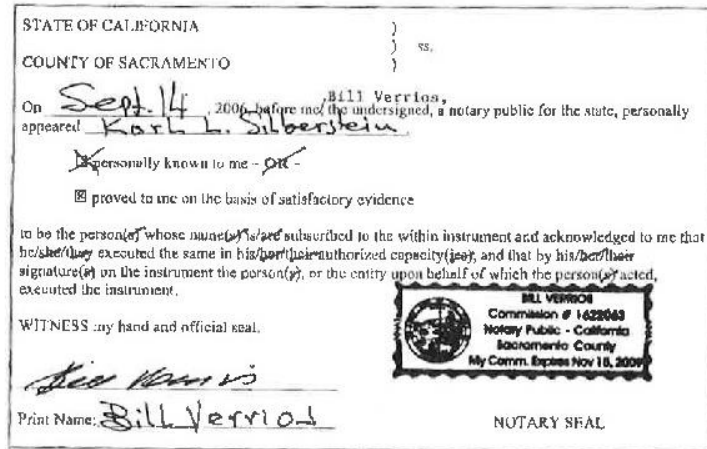 STATE OF CALIFORNIA )
) ss.
COUNTY OF SACRAMENTO )
Bill Verrios,
On Sept. 14, 2006, before me, the undersigned, a notary public for the state, personally
appeared Karl L. Silberstein
☒ personally known to me - OR -
☒ proved to me on the basis of satisfactory evidence
to be the person(s) whose name(s) is/are subscribed to the within instrument and acknowledged to me that
he/she/they executed the same in his/her/their authorized capacity(ies), and that by his/her/their
signature(s) on the instrument the person(s), or the entity upon behalf of which the person(s) acted,
executed the instrument.
WITNESS my hand and official seal.
BILL VERRIOS
Commission # 1622063
Notary Public - California
Sacramento County
My Comm. Expires Nov 15, 2009
Print Name: Bill Verrios
NOTARY SEAL